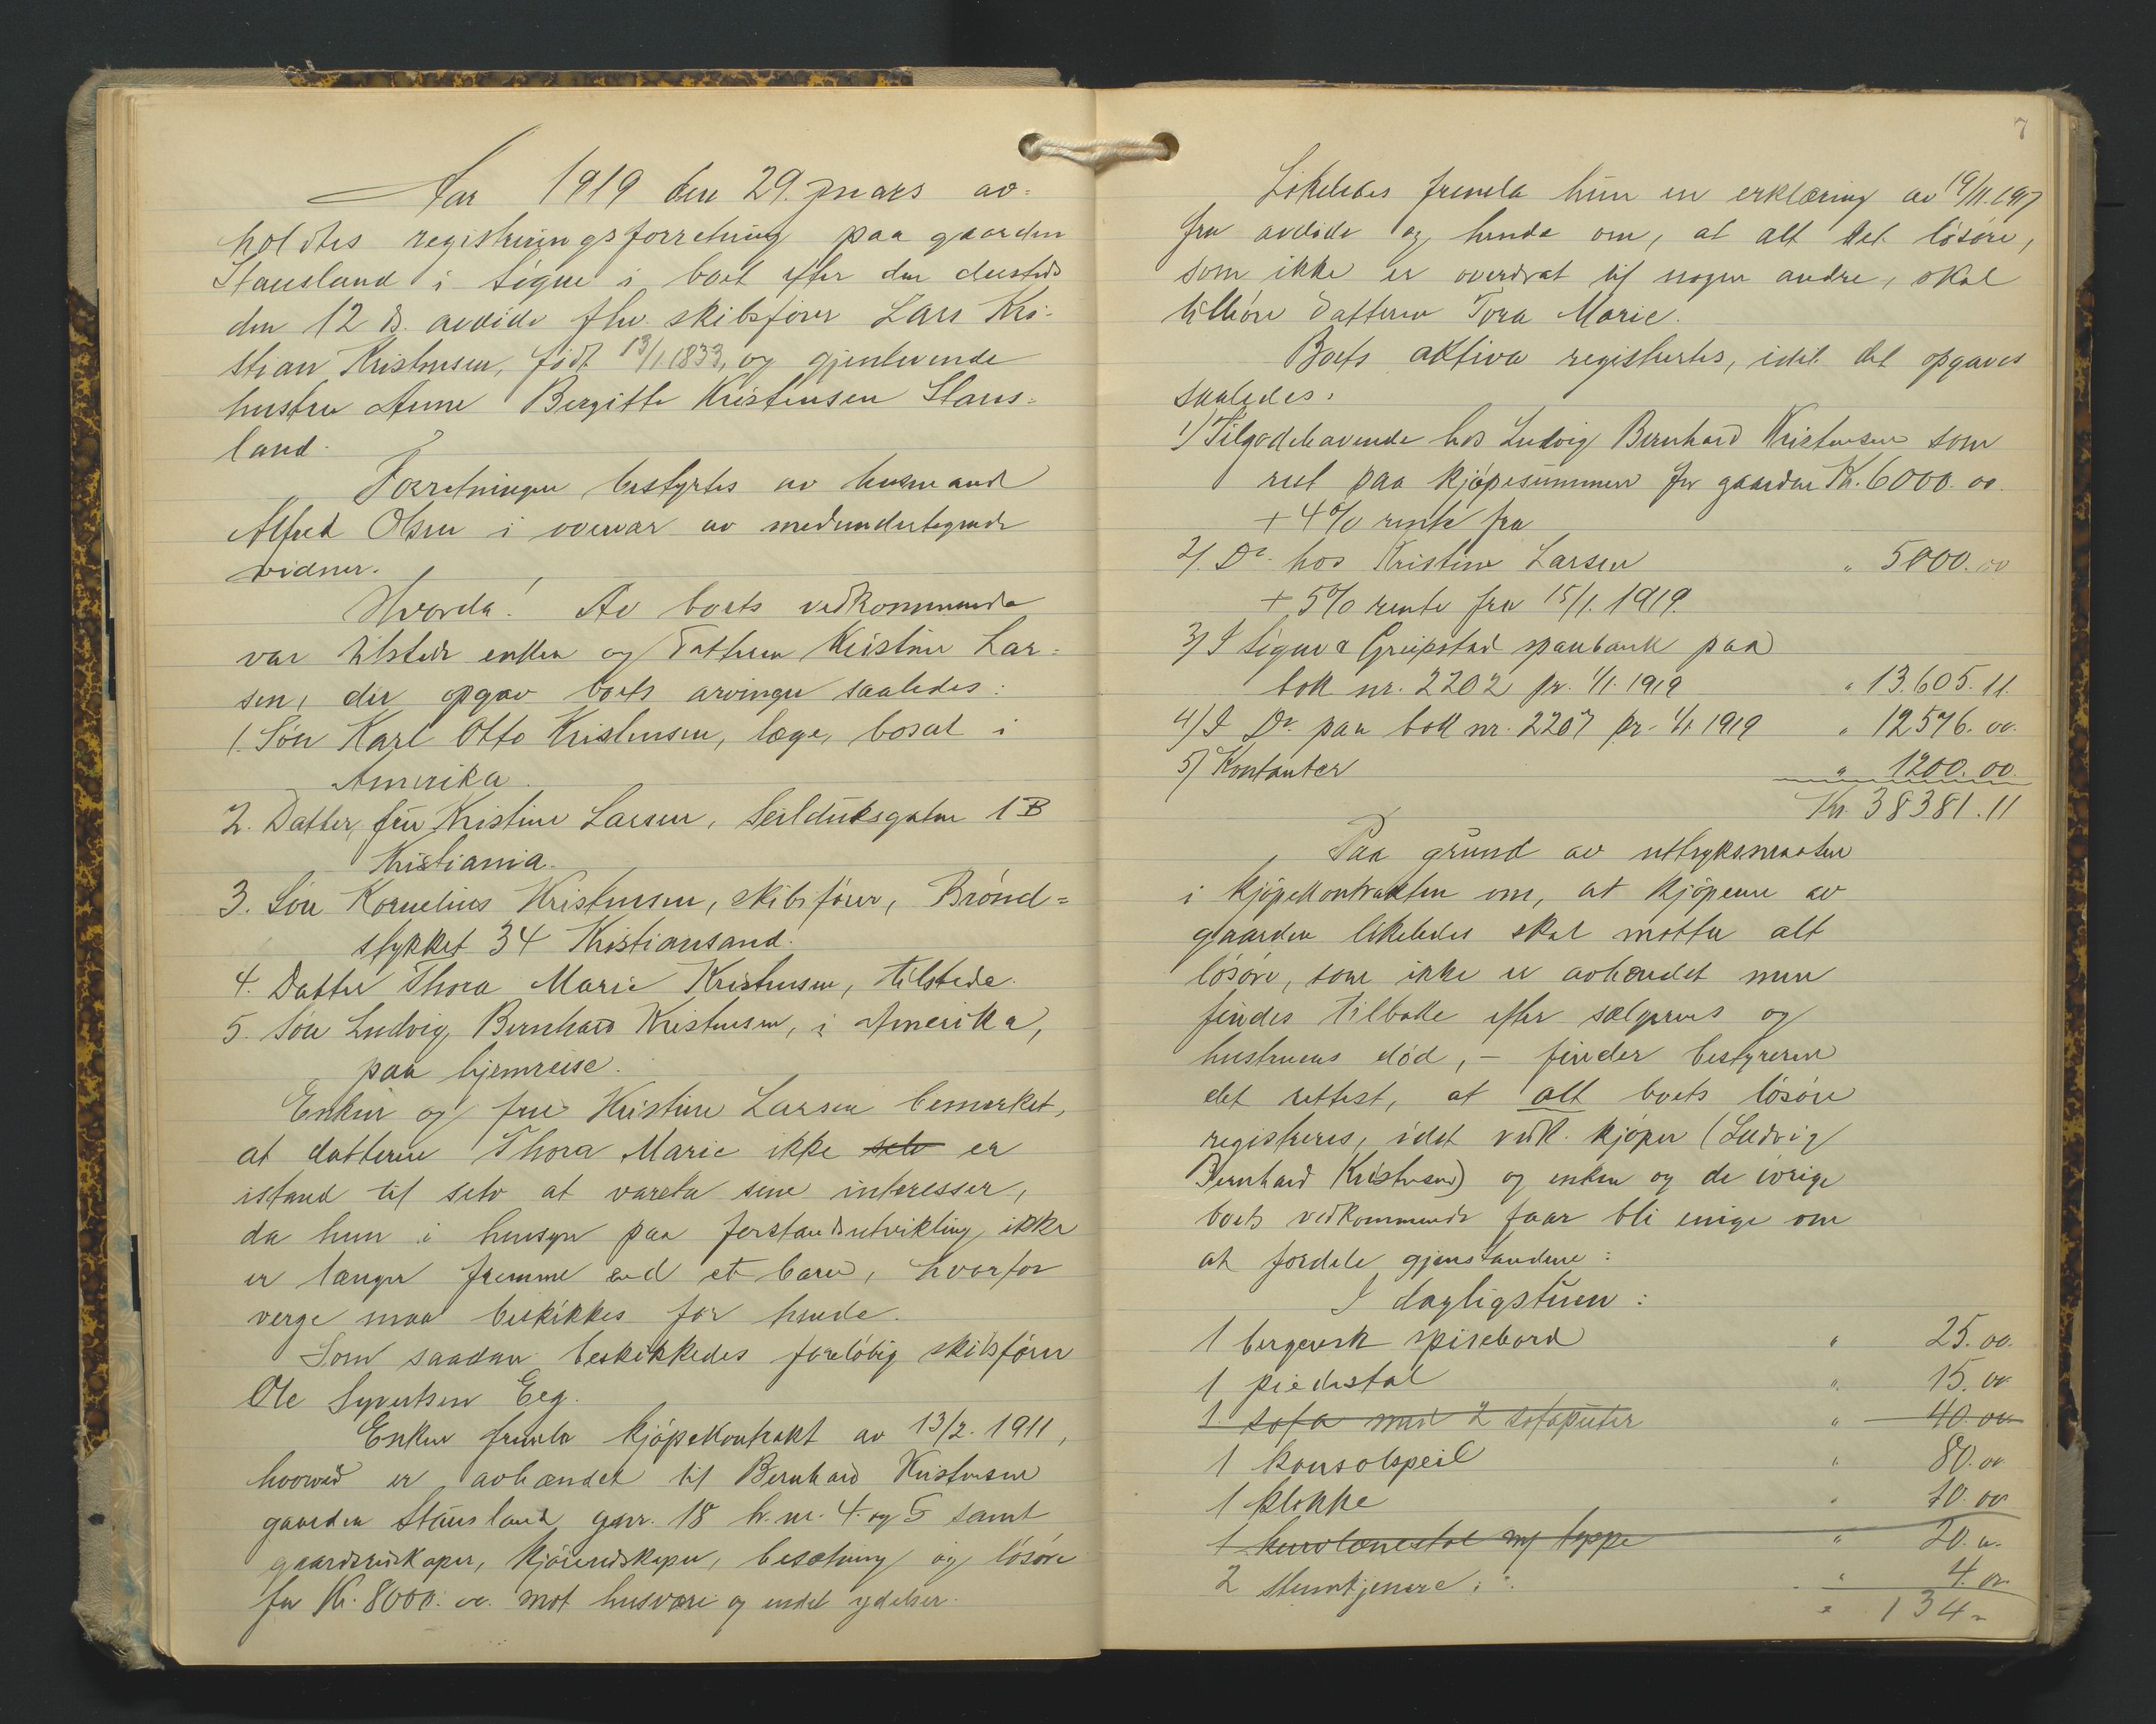 Aar 1919 den 29. mars av=
holdtes registreringsforretning paa gaarden
Stausland i Søgne i boet efter den dersteds
den 12 ds. avdøde fhv. skibsfører Lars Kri-
stian Kristensen, født 13/1.1833, og gjenlevende
hustru Anne Bergitte Kristensen Staus=
land.
Forretningen bestyrtes av lensmand
Alfred Olsen i overvær av medundertegnede
vidner.
Hvorda! Av boets vedkommende
var tilstede enken og datteren Kristine Lar=
sen, der opgav boets arvinger saaledes:
1. Søn Karl Otto Kristensen, læge, bosat i
Amerika.
2. Datter, fru Kristine Larsen, Seilduksgaten 1B
Kristiania.
3. Søn Kornelius Kristensen, skibsfører, Brønd=
stykket 34 Kristiansand.
4. Datter Thora Marie Kristensen, tilstede.
5. Søn Ludvig Bernhard Kristensen, i Amerika,
paa hjemreise.
Enken og frue Kristine Larsen bemerket,
at datteren Thora Marie ikke selv er
istand til selv at vareta sine interesser,
da hun i hensyn paa forstandsutvikling ikke
er længer fremme end et barn, hvorfor
verge maa beskikkes for hende.
Som saadan beskikkedes foreløbig skibsfører
Ole Syvertsen Eeg.
Enken fremla kjøpekontrakt av 13/2. 1911,
hvorved er avhændet til Bernhard Kristensen
gaarden Stausland gnr. 18 b.nr. 4 og 5 samt
gaardsredskaper, kjøreredskaper, besætning og løsøre
for Kr. 8000.00. mot husvære og endel ydelser.
7
Likeledes fremla hun en erklæring av 19/11.1917
fra avdøde og hende om, at alt det løsøre,
som ikke er overdrat til nogen andre, skal
tilhøre datteren Tora Marie.
Boets aktiva registrertes, idet det opgaves
saaledes:
1) Tilgodehavende hos Ludvig Bernhard Kristensen som
rest paa kjøpesummen for gaarden Kr. 6000.00.
+ 4% rente fra
2). Do. hos Kristine Larsen " 5000.00
+ 5% rente fra 15/1. 1919.
3) I Søgne & Greipstad sparebank paa
bok nr. 2202 pr. 1/1. 1919 " 13.605.11.
4) I Do. paa bok nr. 2207 pr. 1/1. 1919 " 12576.00.
5) Kontanter " 1200.00.
Kr. 38381.11
Paa grund av uttryksmaaten
i kjøpekontrakten om, at kjøperen av
gaarden likeledes skal motta alt
løsøre, som ikke er avhændet men
findes tilbake efter sælgerens og
hustruens død, – finder bestyreren
det rettest, at alt boets løsøre
registreres, idet vedk. kjøper (Ludvig
Bernhard Kristensen) og enken og de øvrige
boets vedkommende faar bli enige om
at fordele gjenstandene:
I dagligstuen:
1 bergensk spisebord " 25.00.
1 piedestal " 15.00
1 sofa med 2 sofaputer " 40.00
1 konsolspeil " 80.00
1 klokke " 10.00
1 kurvlænestol m/ teppe " 20.00
2 stumtjenere " 4.00.
" 134-